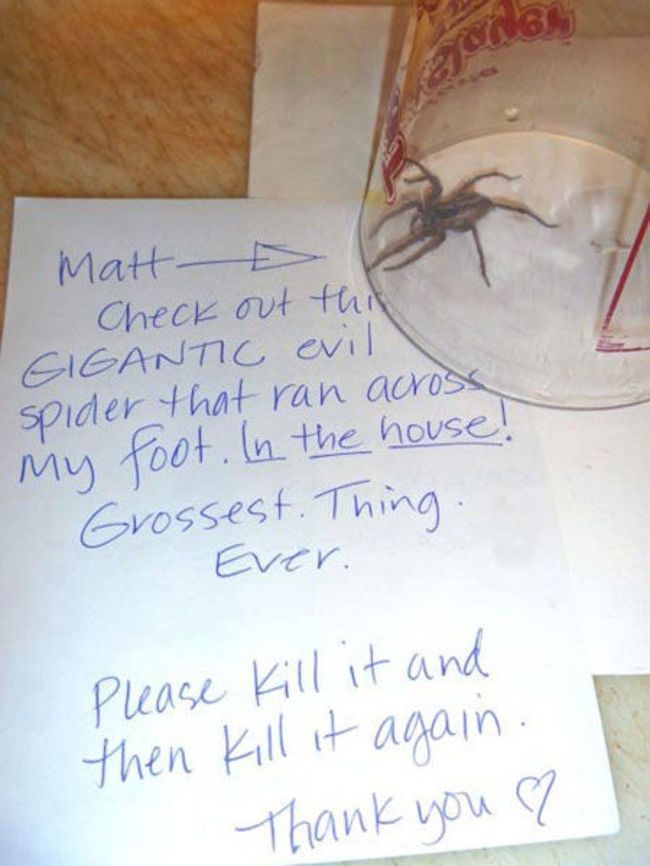 Matt
Check out thi
GIGANTIC evil
spider that ran across
My foot. In the house!
Grossest. Thing.
Ever.
Please kill it and
then kill it again.
Thank you ♡